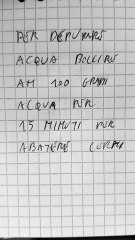 PER DEPURARE
ACQUA BOLLIRE
AM 100 GRADI
ACQUA PER
15 MINUTI PER
ABATERE GERMI